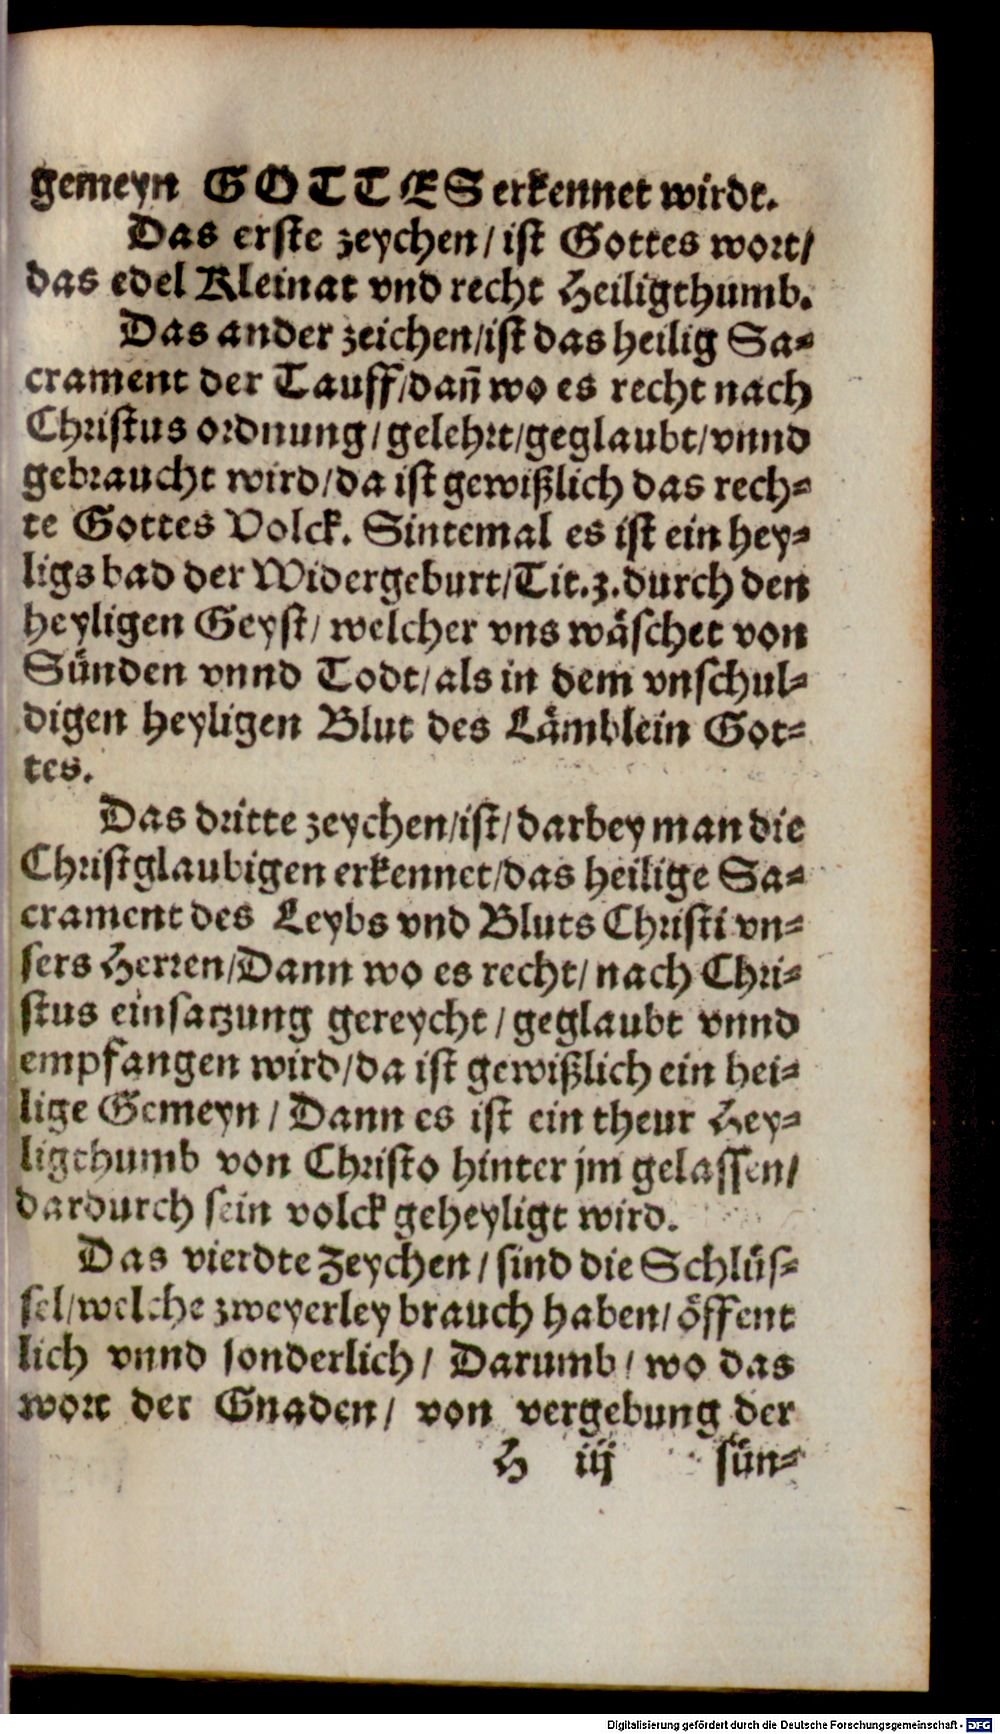 gemeyn GOTTES erkennet wirdt.
Das erste zeychen / ist Gottes wort /
das edel Kleinat vnd recht Heiligthumb.
Das ander zeichen / ist das heilig Sa-
crament der Tauff / dañ wo es recht nach
Christus ordnung / gelehrt / geglaubt / vnnd
gebraucht wird / da ist gewißlich das rech-
te Gottes Volck. Sintemal es ist ein hey-
ligs bad der Widergeburt / Tit. 3. durch den
heyligen Geyst / welcher vns wäschet von
Sünden vnnd Todt / als in dem vnschul-
digen heyligen Blut des Lämblein Got-
tes.
Das dritte zeychen / ist / darbey man die
Christglaubigen erkennet / das heilige Sa-
crament des Leybs vnd Bluts Christi vn-
sers Herren / Dann wo es recht / nach Chri-
stus einsatzung gereycht / geglaubt vnnd
empfangen wird / da ist gewißlich ein hei-
lige Gemeyn / Dann es ist ein theur Hey-
ligthumb von Christo hinter jm gelassen /
dardurch sein volck geheyligt wird.
Das vierdte Zeychen / sind die Schlüs-
sel / welche zweyerley brauch haben / öffent
lich vnnd sonderlich / Darumb / wo das
wort der Gnaden / von vergebung der
H iij sün-
Digitalisierung gefördert durch die Deutsche Forschungsgemeinschaft - DFG